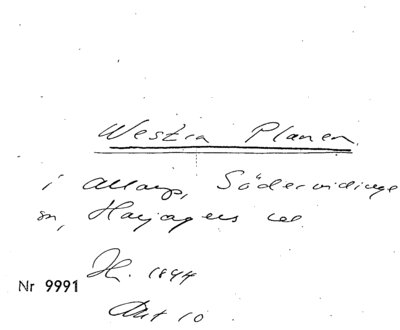 Westra Planen
i Allarp, Södervidinge
sn, Harjagers
H. 1844
Nr 9991
Akt 10